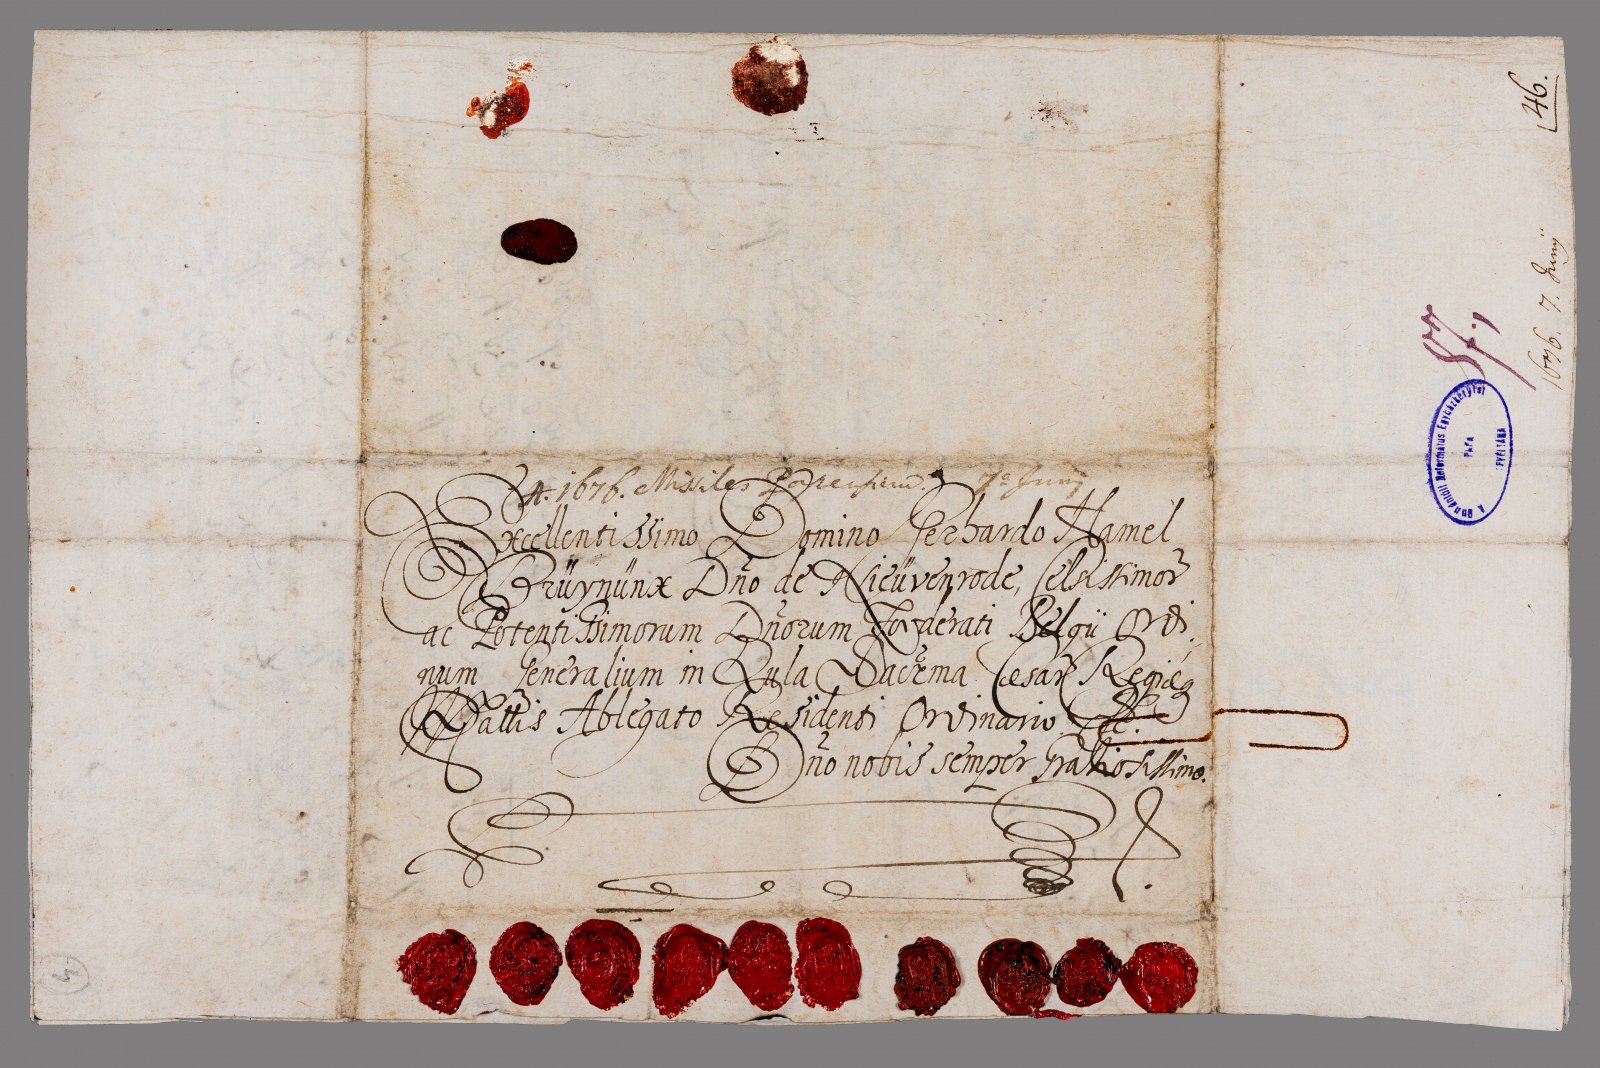 A. 1676. Missiles 7ª Junij
Excellentissimo Domino Gerhardo Hamel
Brüÿnünx Dño de Nieüvenrode, Celsissimor
ac Potentissimorum Dñorum Foederati Belgÿ Ordi
num Generalium in Aula Sacrma Caesar Regiæq
Mattis Ablegato Residenti Ordinario etc.
Dño nobis semper Gratiosissimo.
46.
1676. 7. Junij
57.,
A Dunántúli Református Egyházkerület
PÁPA
LEVÉLTÁRA